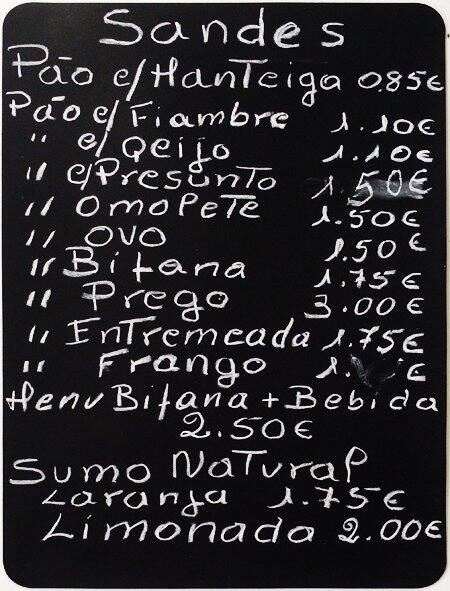 Sandes
Pão c/ Manteiga 0.85€
Pão c/ Fiambre 1.10€
" c/ Qeijo 1.10€
" c/ Presunto 1.50€
" Omolete 1.50€
" Ovo 1.50€
" Bifana 1.75€
" Prego 3.00€
" Entremeada 1.75€
" Frango €
Menu Bifana + Bebida
2.50€
Sumo Natural
Laranja 1.75€
Limonada 2.00€